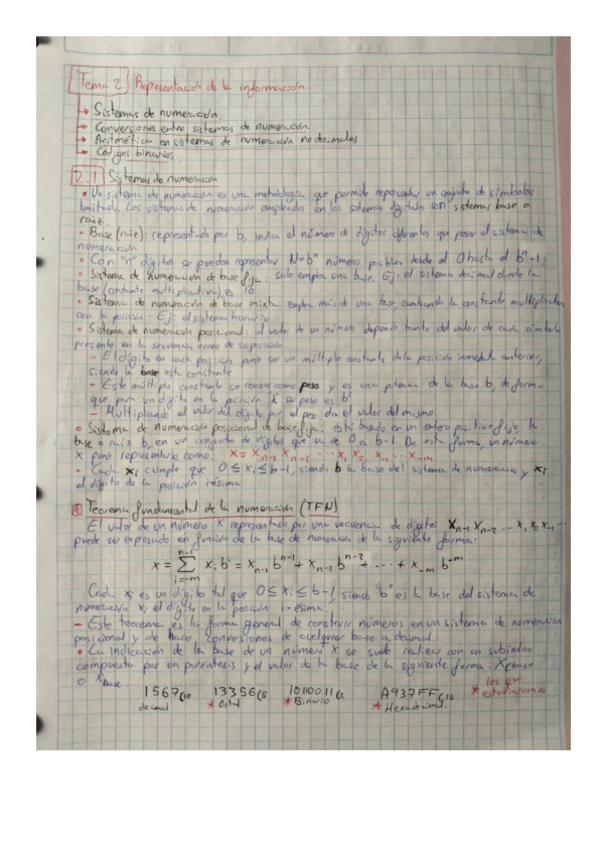 Tema 2) Representación de la información.
Sistemas de numeración
Conversiones entre sistemas de numeración.
Aritmética en sistemas de numeración no decimales
Códigos binarios
2.1 Sistemas de numeración
• Un sistema de numeración es una metodología que permite representar un conjunto de símbolos
limitado. Los sistemas de numeración empleados en los sistemas digitales son sistemas base o
raíz.
• Base (raíz): representado por b, indica el número de dígitos diferentes que posee el sistema de
numeración
• Con "n" dígitos se pueden representar N=bⁿ números posibles desde el 0 hasta el bⁿ-1;
• Sistema de numeración de base fija: solo emplea una base. Ej: el sistema decimal donde la
base (constante multiplicativa) es 10
• Sistema de numeración de base mixta: emplea más de una base, cambiando la constante multiplicadora
con la posición: Ej: el sistema horario.
• Sistema de numeración posicional: el valor de un número depende tanto del valor de cada símbolo
presente en la secuencia como de su posición.
- El dígito en cada posición puede ser un múltiplo constante de la posición inmediata anterior,
siendo la base esta constante
- Este múltiplo constante se conoce como peso y es una potencia de la base b, de forma
que para un dígito en la posición i su peso es bⁱ
- Multiplicando el valor del dígito por el peso da el valor del mismo.
• Sistema de numeración posicional de base fija: está basado en un entero positivo fijo, la
base o raíz b, en un conjunto de dígitos que va de 0 a b-1 De esta forma, un número
x puede representarse como: x = xn-1 xn-2 ... x1 x0, x-1 ... x-m
• Cada xi cumple que 0 ≤ xi ≤ b-1, siendo b la base del sistema de numeración y xi
el dígito de la posición iésima
Teorema fundamental de la numeración (TFN)
El valor de un número x representado por una secuencia de dígitos xn-1 xn-2 ... x1 x0 x-1 ...
puede ser expresado en función de la base de numeración de la siguiente forma:
x = Σ(i=-m, n-1) xi bⁱ = xn-1 bⁿ⁻¹ + xn-2 bⁿ⁻² + ... + x-m b⁻ᵐ
Cada xi es un dígito tal que 0 ≤ xi ≤ b-1, siendo "b" es la base del sistema de
numeración xi el dígito en la posición i-ésima.
- Este teorema es la forma general de construir números en un sistema de numeración
posicional y de hacer conversiones de cualquier base a decimal.
• La indicación de la base de un número x se suele realizar con un subíndice
compuesto por un paréntesis y el valor de la base de la siguiente forma: X(base
o Xbase
1567(10 13356(8 1011001(2 A937FF(16 * los que estudiaremos
decimal * Octal * Binario * Hexadecimal.